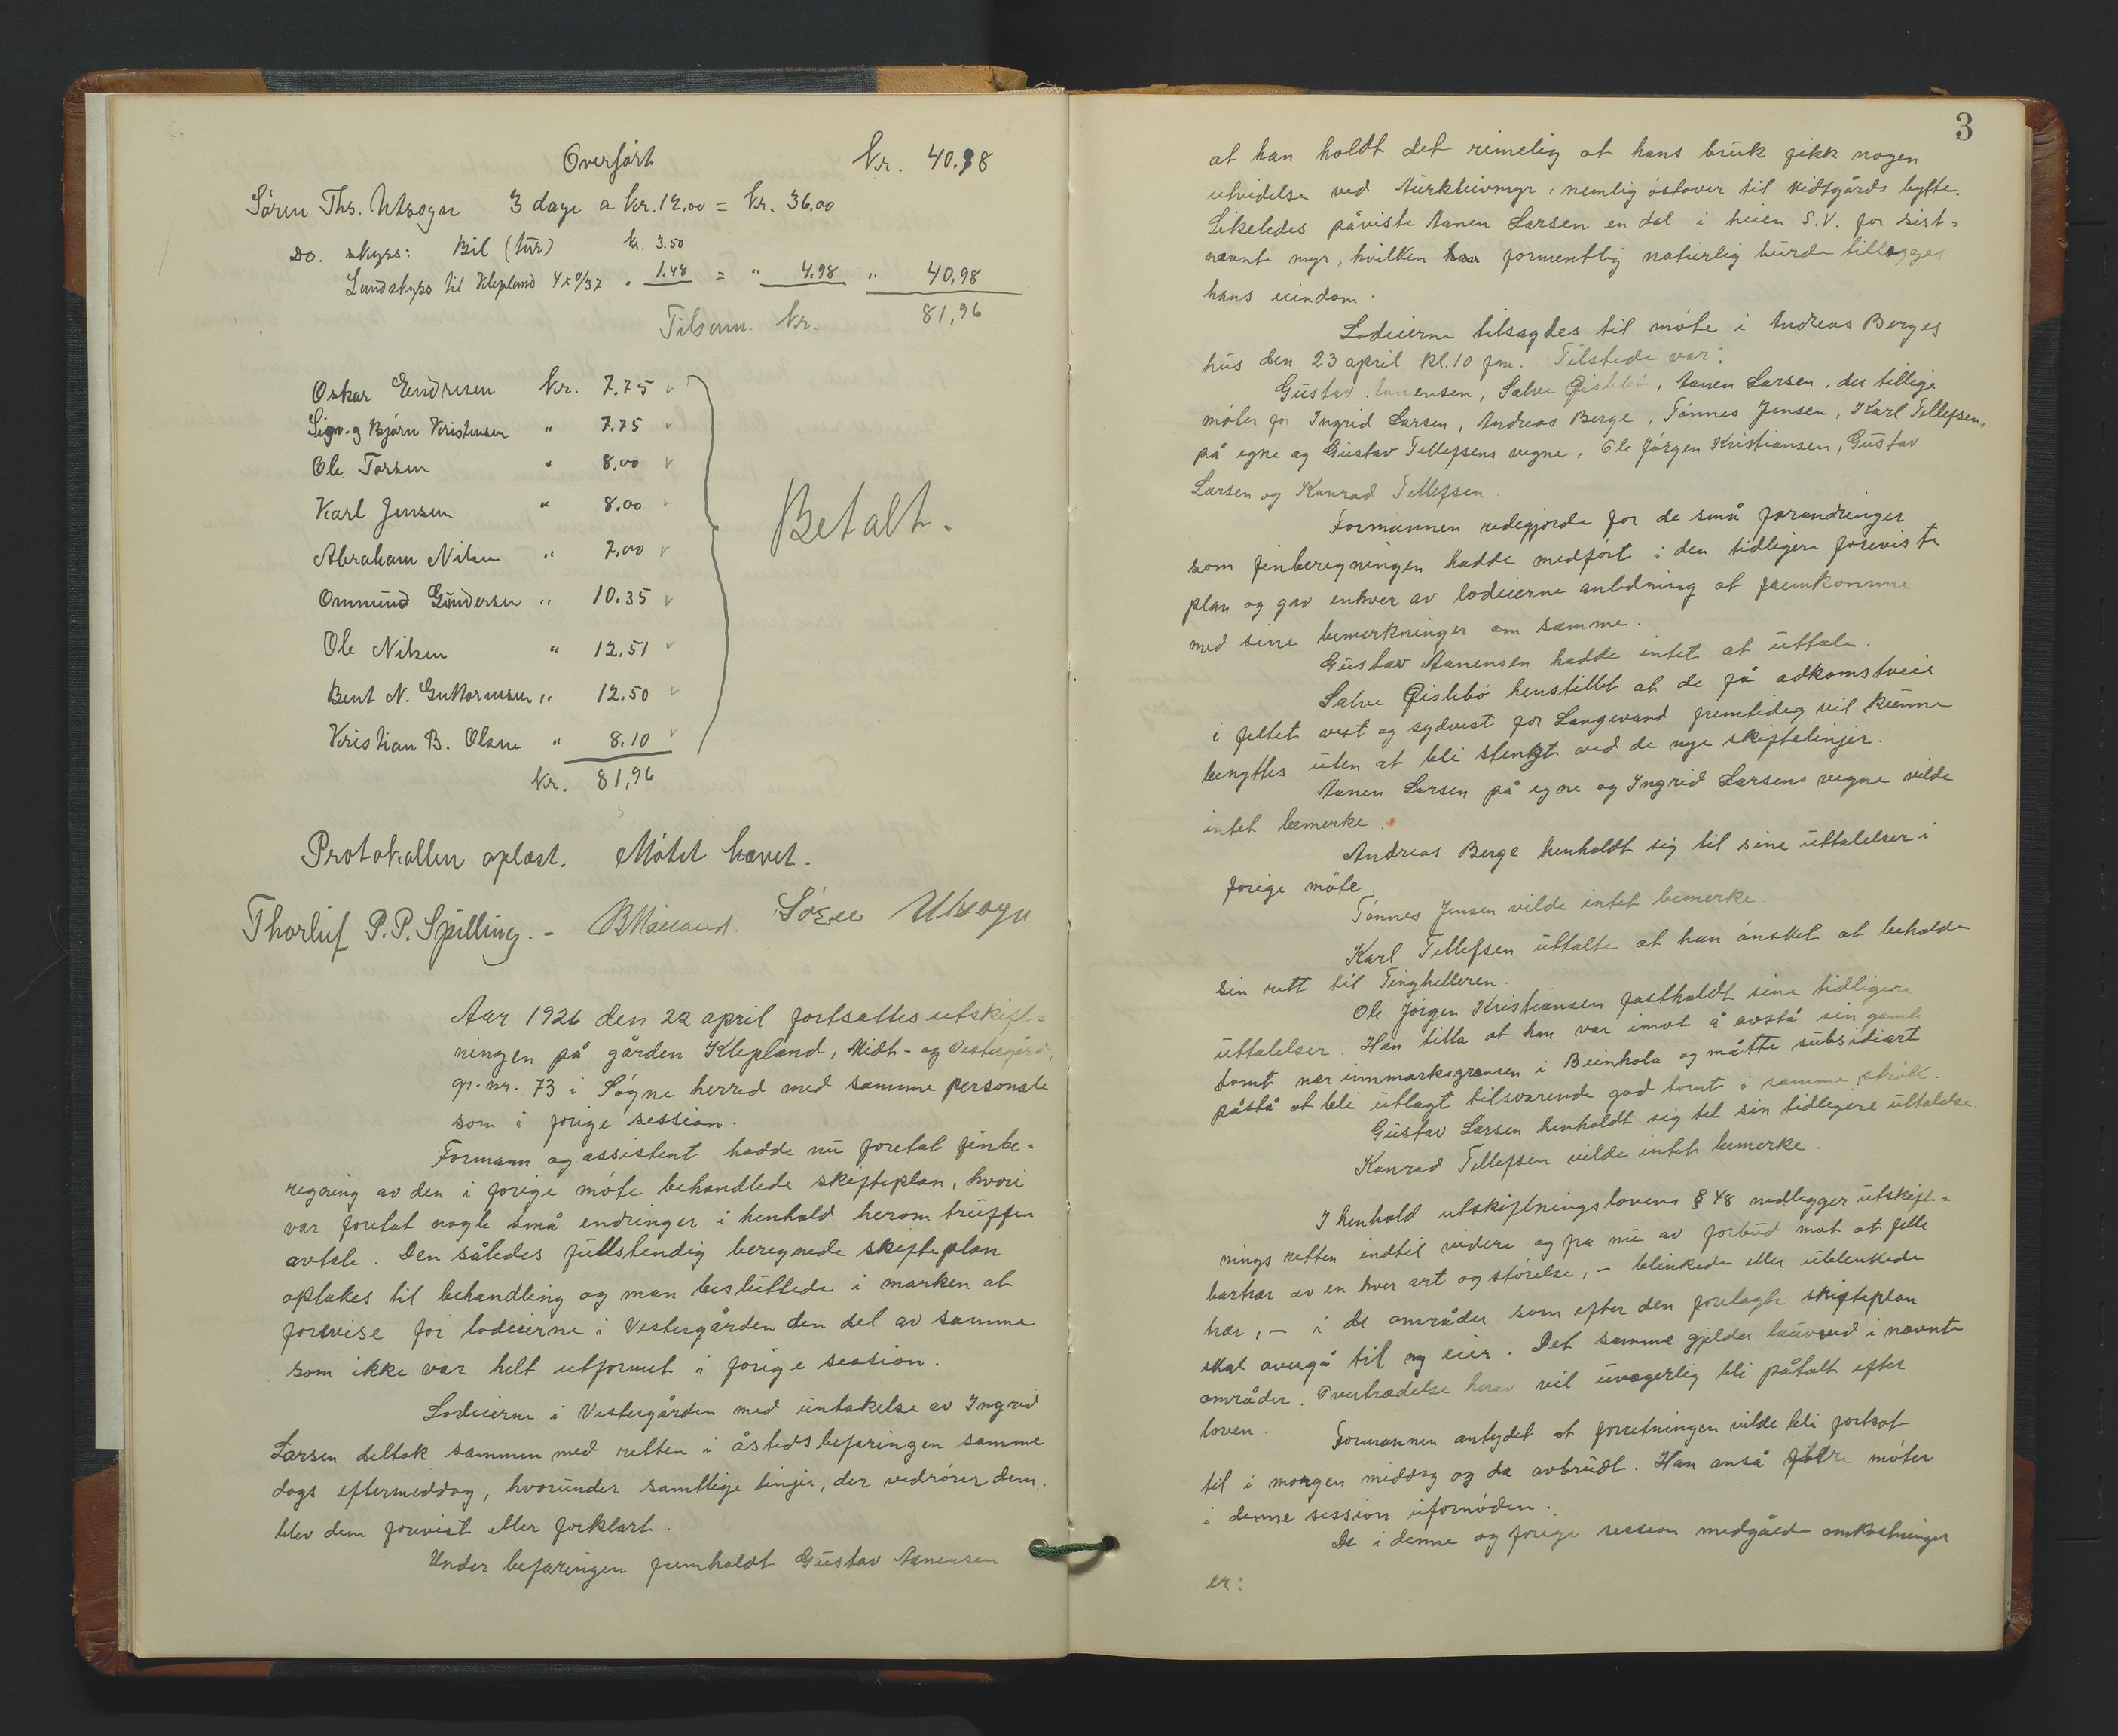 Overført Kr. 40.98
Søren Ths. Utsogn 3 dage a kr. 12.00 = kr. 36.00
Do. skyss: Bil (tur) kr. 3.50
Landskyss til Klepland 4 x 0/37 " 1.48 = " 4.98 " 40,98
Tilsam. kr. 81,96
Oskar Eendresen kr. 7.75
Sigv. og Bjørn Kristensen " 7.75
Ole Torsen " 8.00
Karl Jensen " 8.00
Abraham Nilsen " 7.00
Ommund Gundersen " 10.35
Ole Nilsen " 12.51
Bent N. Guttormsen " 12.50
Kristian B. Olsen " 8.10
Kr. 81,96
Betalt.
Protokollen oplæst. Møtet hævet.
Thorleif P.P. Spilling. - Søren Utsogn
Aar 1926 den 22 april fortsattes utskift-
ningen på gården Klepland, Midt- og Vestergård,
gr. nr. 73 i Søgne herred med samme personale
som i forige session.
Formann og assistent hadde nu foretat finbe-
regning av den i forige møte behandlede skifteplan, hvori
var foretat nogle små endringer i henhold herom truffen
avtale. Den således fullstendig beregnede skifteplan
optokes til behandling og man besluttede i marken at
forevise for lodeierne i Vestergården den del av samme
som ikke var helt utformet i forige session.
Lodeierne i Vestergården med untakelse av Ingrid
Larsen deltok sammen med retten i åstedsbefaringen samme
dags eftermiddag, hvorunder samtlige linjer, der vedrører dem,
blev dem forevist eller forklart.
Under befaringen fremholdt Gustav Aanensen
3
at han holdt det rimelig at hans bruk fikk nogen
utvidelse ved Turkleivmyr, nemlig østover til Midtgårds bytte.
Likeledes påviste Aanen Larsen en dal i heien S.V. for sist-
nævnte myr, hvilken formentlig naturlig burde tillægges
hans eiendom.
Lodeierne tilsagdes til møte i Andreas Berges
hus den 23 april kl. 10 fm. Tilstede var:
Gustav Aanensen, Salve Gislebø, Aanen Larsen, der tillige
møter for Ingrid Larsen, Andreas Berge, Tønnes Jensen, Karl Tellefsen,
på egne og Gustav Tellefsens vegne, Ole Jørgen Kristiansen, Gustav
Larsen og Konrad Tellefsen.
Formannen redegjorde for de små forandringer
som finberegningen hadde medført i den tidligere foreviste
plan og gav enhver av lodeierne anledning at fremkomme
med sine bemerkninger om samme.
Gustav Aanensen hadde intet at uttale.
Salve Gislebø henstillet at de få adkomstveie
i feltet vest og sydvest for Langevand fremtidig vil kunne
benyttes uten at bli stengt ved de nye skiftelinjer.
Aanen Larsen på egne og Ingrid Larsens vegne vilde
intet bemerke.
Andreas Berge henholdt sig til sine uttalelser i
forige møte.
Tønnes Jensen vilde intet bemerke.
Karl Tellefsen uttalte at han ønsket at beholde
sin rett til Tinghelleren.
Ole Jørgen Kristiansen fastholdt sine tidligere
uttalelser. Han tilla at han var imot å avstå sin gamle
tomt nær innmarksgrensen i Beinhola og måtte subsidiært
påstå at bli utlagt tilsvarende god tomt i samme strøk.
Gustav Larsen henholdt sig til sin tidligere uttalelse
Konrad Tellefsen vilde intet bemerke.
I henhold utskiftningslovens § 48 nedlegger utskift-
nings retten indtil videre og fra nu av forbud mot at felle
bartrær av en hver art og størelse, - blinkede eller ublenkede
trær, - i de områder som efter den forelagte skifteplan
skal overgå til ny eier. Det samme gjelder lauvved i nævnte
områder. Overtrædelse herav vil uvægerlig bli påtalt efter
loven.
Formannen antydet at forretningen vilde bli fortsat
til i morgen middag og da avbrudt. Han anså flere møter
i denne session ufornøden.
De i denne og forige session medgåede omkostninger
er: